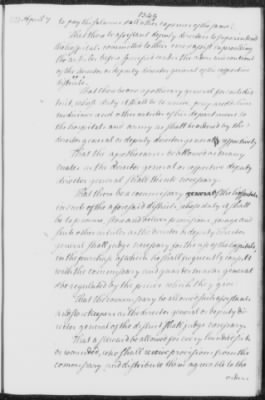 1777 April 7
to pay the balance and other expences of the same:
That there be an assistant deputy director to superintend
the hospitals, committed to
the articles before purchased under the order and controul
of the director or deputy director general of the respective
districts:
That there be one apothecary general for each dis-
trict, whose duty it shall be to receive, prepare and deliver
medicines and other articles of his department to
the hospitals and army as shall be ordered by the
director general or deputy director general respectively
That the apothecaries be allowed as many
mates as the director general or respective deputy
director general shall think necessary
That there be a commissary of the hospitals
in each of the aforesaid districts, whose duty it shall
be to procure, store and deliver provisions, forage and
such other articles as the director or deputy director
general shall judge necessary for the use of the hospitals,
in the purchase of which he shall frequently consult
with the commissary and quarter master general
and be regulated by the prices which they give
That the commissary be allowed such assistants
and storekeepers as the director general or deputy di-
rector general of the district shall judge necessary.
That a steward be allowed for every hundred sick
or wounded, who shall receive provisions from the
commissary and distribute them agreeable to the